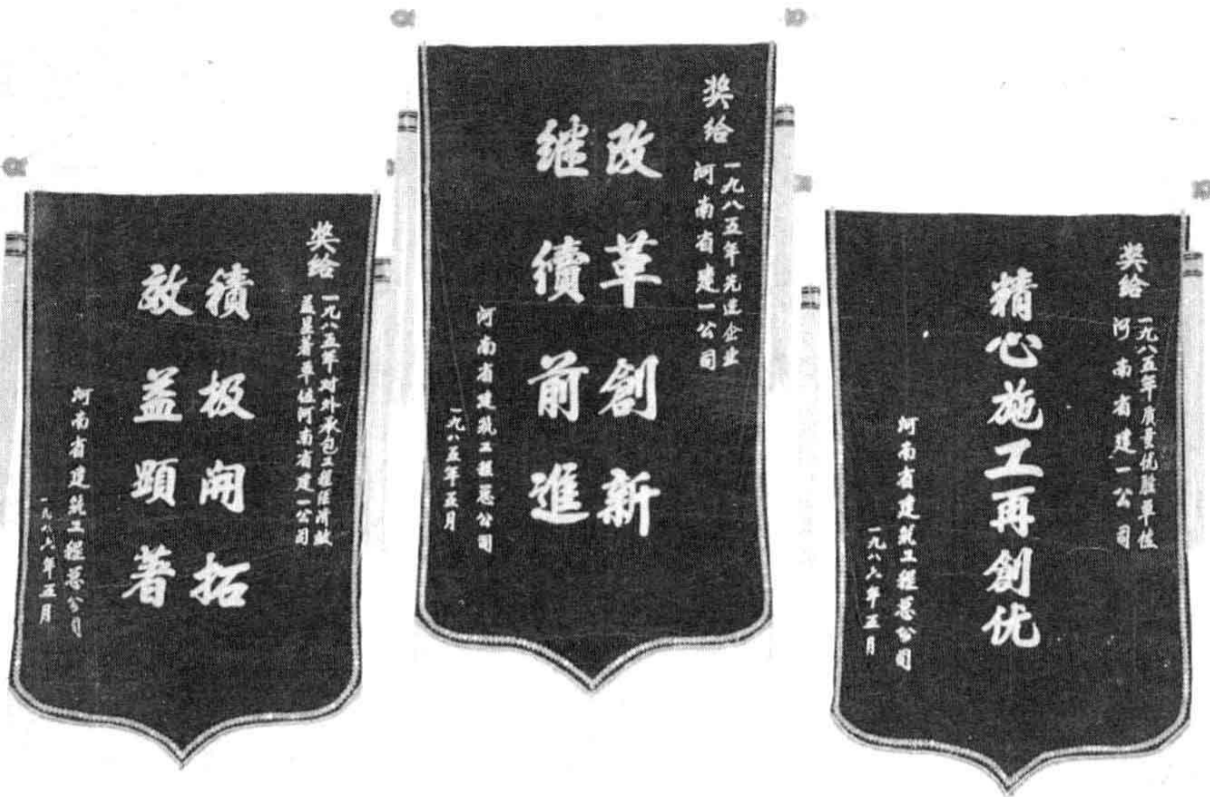 奖给
一九八五年对外承包工程经济效
益显著单位河南省建一公司
積极開拓
效益顕著
河南省建筑工程总公司
一九八六年五月
奖给
一九八五年先进企业
河南省建一公司
改革創新
继續前進
河南省建筑工程总公司
一九八五年五月
奖给
一九八五年质量优胜单位
河南省建一公司
精心施工再創优
河南省建筑工程总公司
一九八六年五月